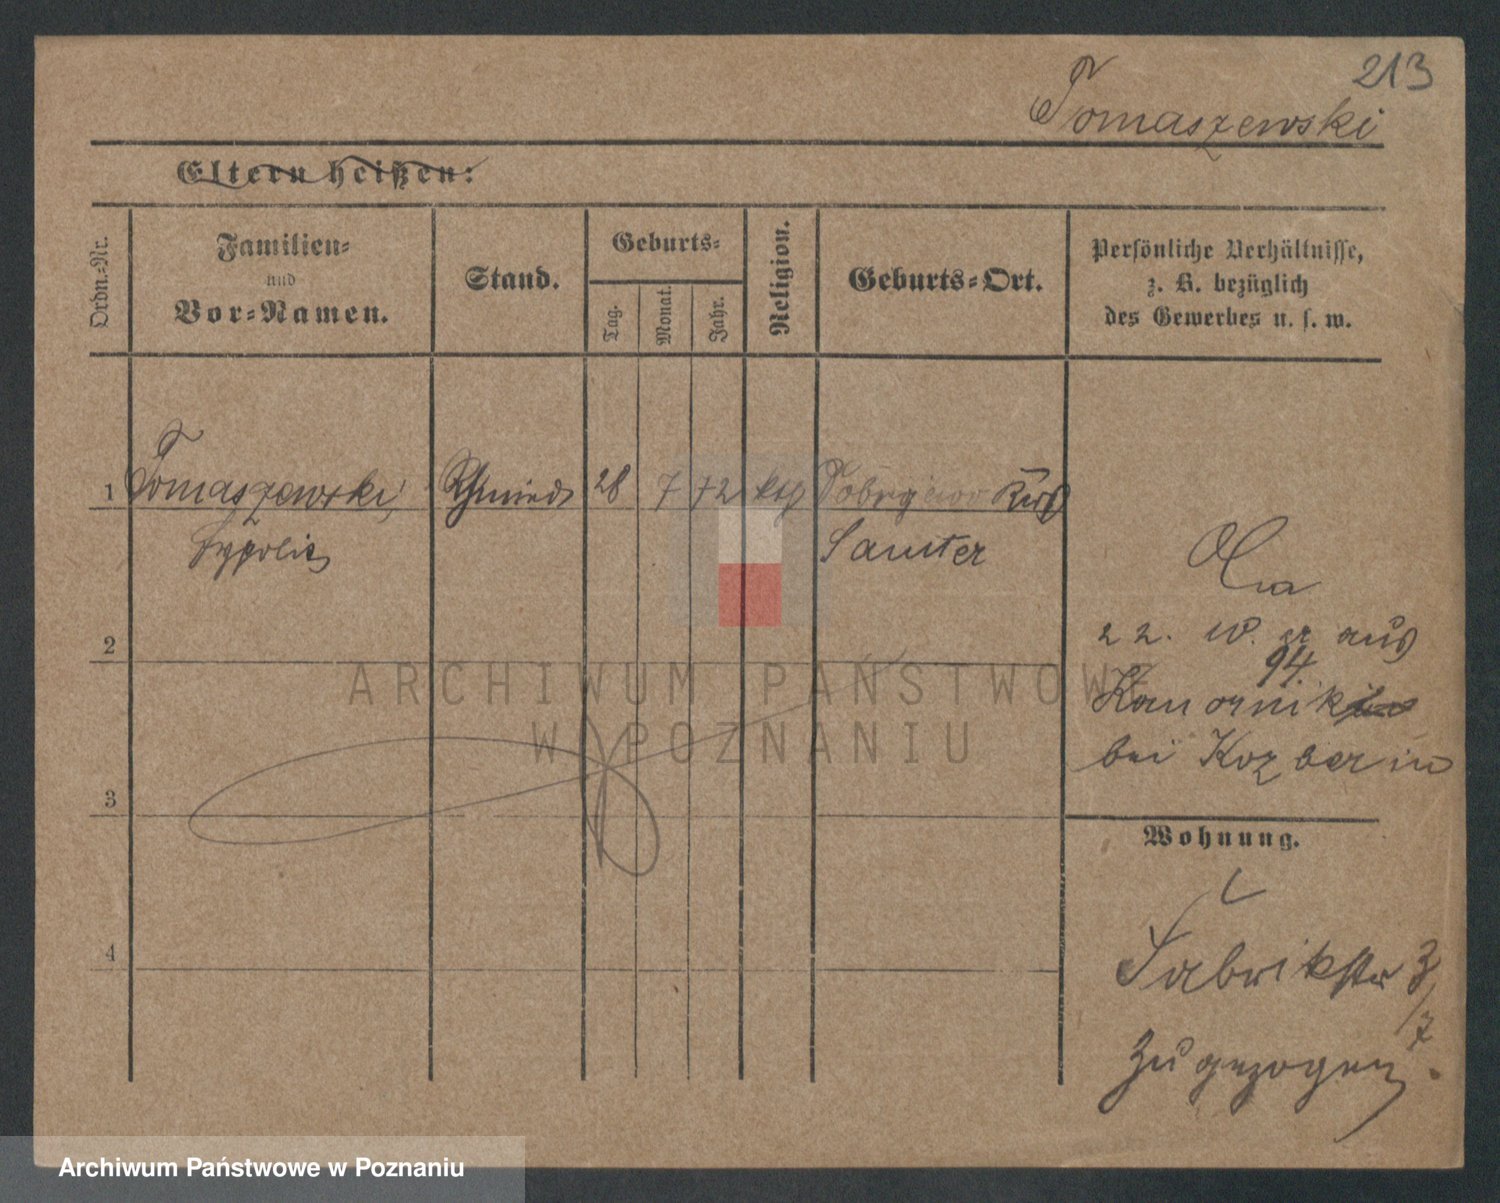 213
Tomaszewski
Eltern heißen:
Ordn.-Nr.
Familien-
und
Vor-Namen.
Stand.
Geburts-
Tag.
Monat.
Jahr.
Religion.
Geburts-Ort.
Persönliche Verhältnisse,
z. B. bezüglich
des Gewerbes u. s. w.
1 Tomaszewski, Schmied 28 7 72 kth
Samter
22. er aus
94.
bei
2
3
4
Wohnung.
Fabrikstr 3/7
Zugezogen.
ARCHIWUM PAŃSTWOWE
W POZNANIU
Archiwum Państwowe w Poznaniu